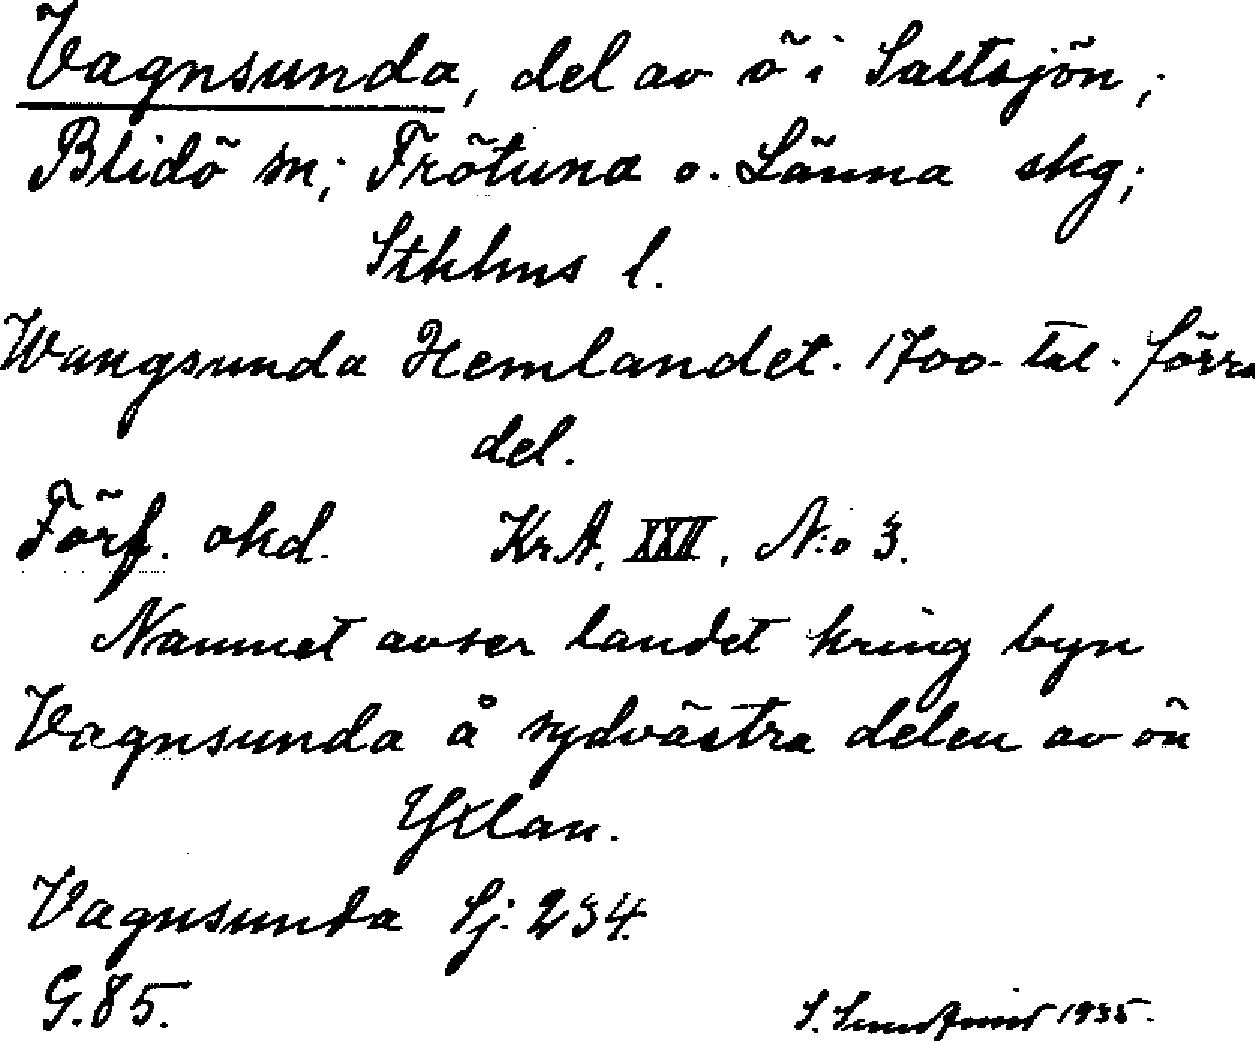 Vagnsunda, del av ö i Saltsjön;
Blidö sn; Frötuna o. Länna skg;
Sthlms l.
Wangsunda Hemlandet. 1700-tal. förra
del.
Förf. okd. Kr.A. XXII, N:o 3.
Namnet avser landet kring byn
Vagnsunda å sydvästra delen av ön
Yxlan.
Vagnsunda Sj: 234.
G. 85.
S. 1935.